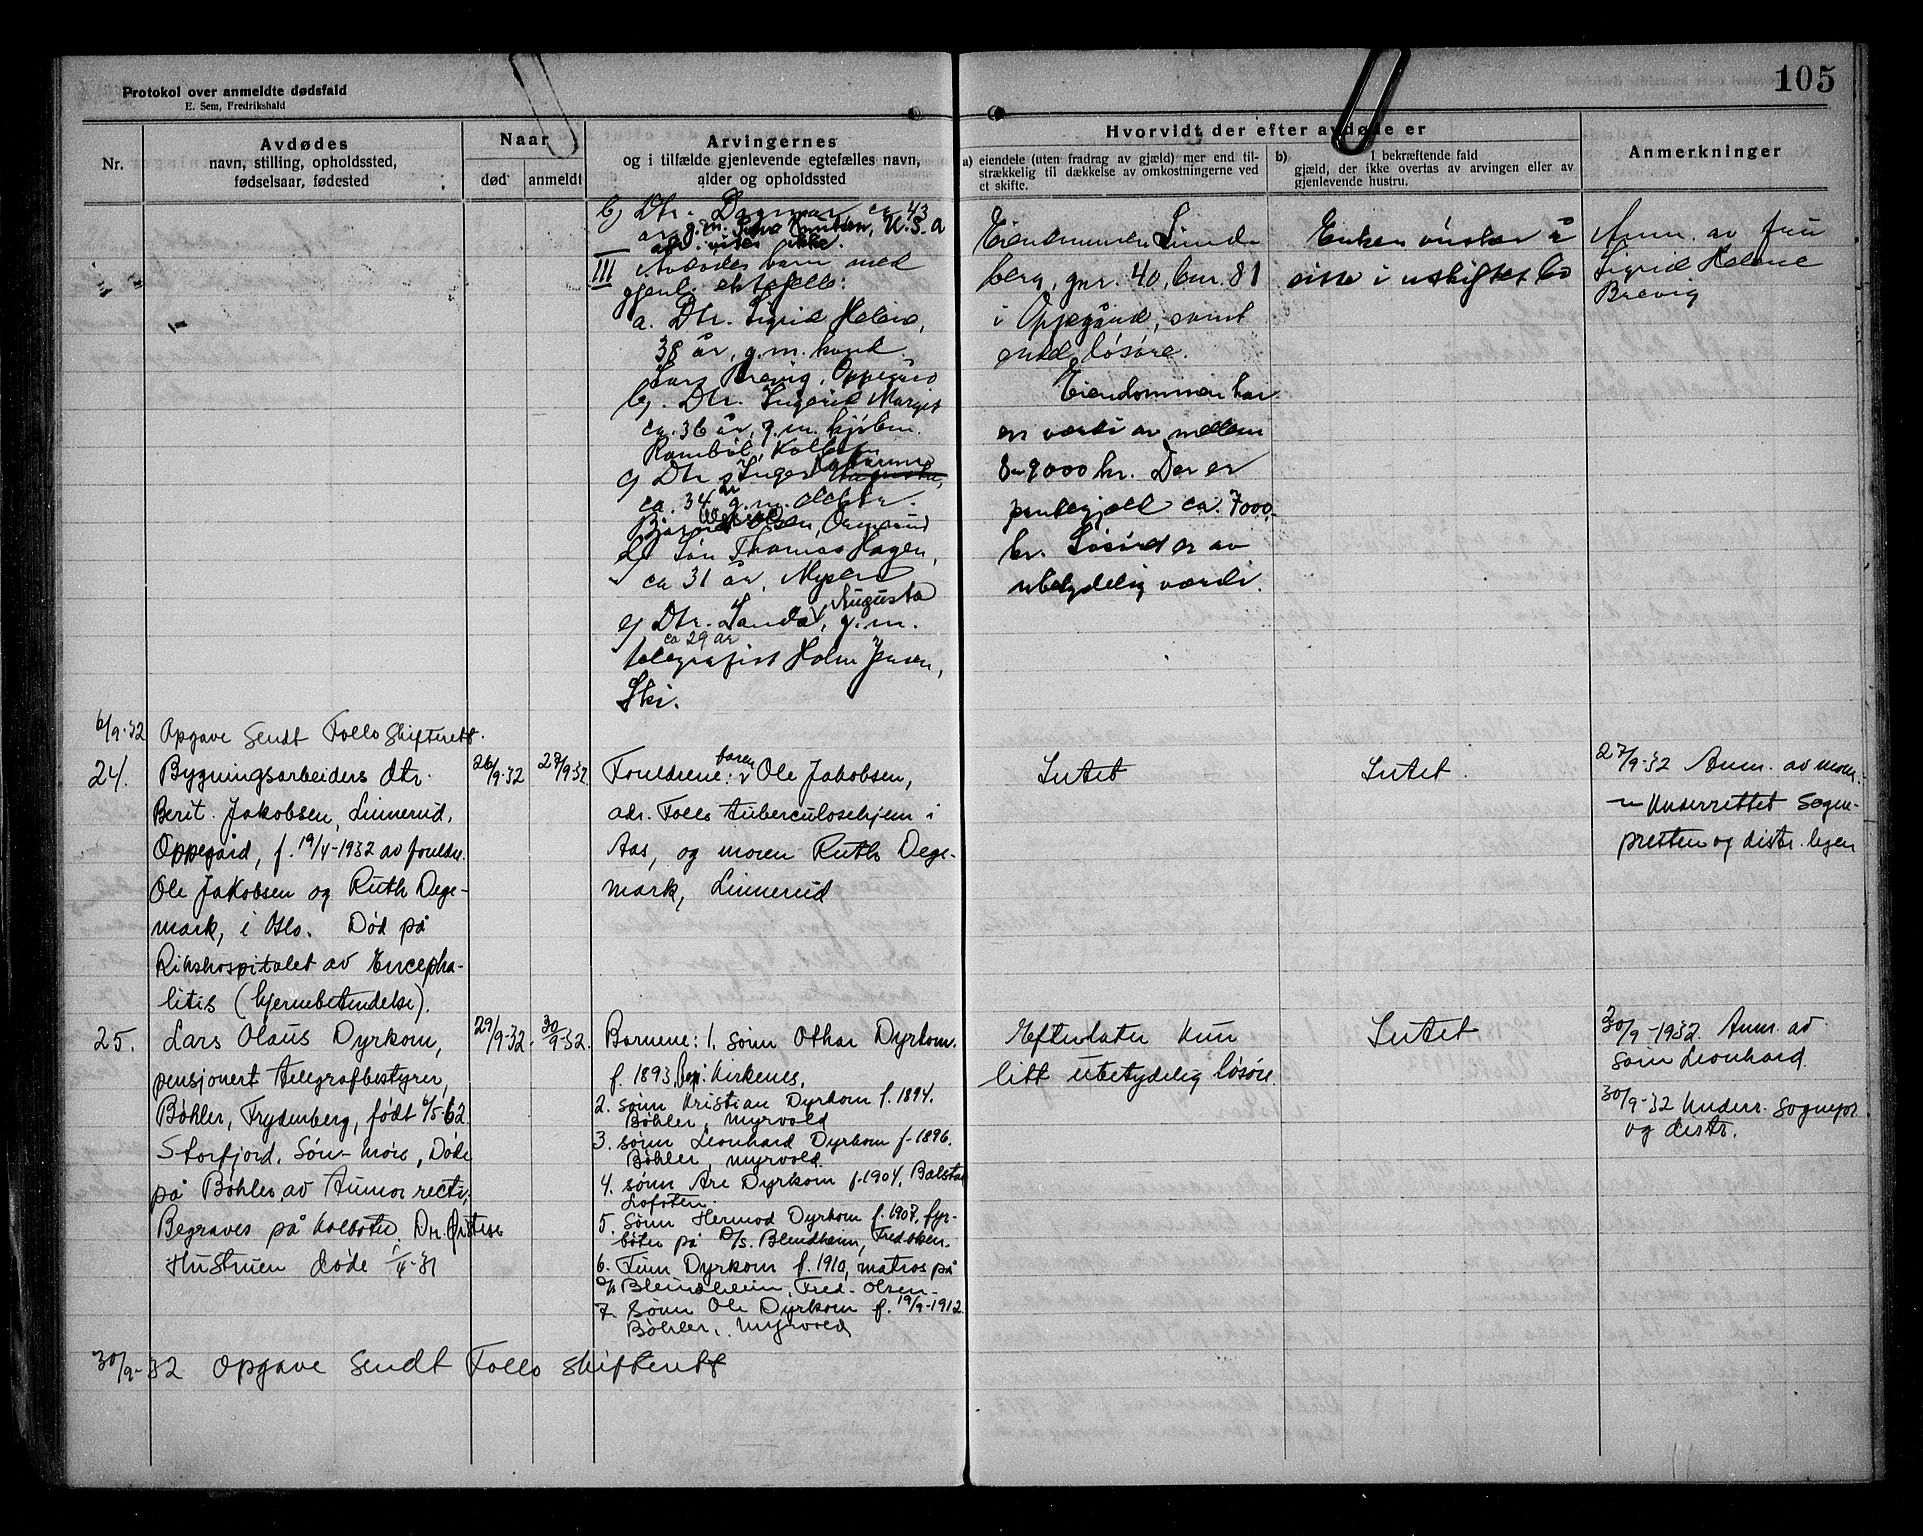 105
Protokol over anmeldte dødsfald
E. Sem, Fredrikshald
Nr.
Avdødes
navn, stilling, opholdssted,
fødselsaar, fødested
Naar
død
anmeldt
Arvingernes
og i tilfælde gjenlevende egtefælles navn,
alder og opholdssted
Hvorvidt der efter avdøde er
a) eiendele (uten fradrag av gjæld) mer end til-
strækkelig til dækkelse av omkostningerne ved
et skifte.
b) I bekræftende fald
gjæld, der ikke overtas av arvingen eller av
gjenlevende hustru.
Anmerkninger
b) Dtr. Dagmar ca 43
år g.m. Knutsen, U.S.A
adr. vites ikke.
III Avdødes barn med
gjenl. ektefelle:
a. Dtr. Sigrid Helene,
38 år, g.m. hand.
Lars Brevig, Oppegård
b). Dtr. Ingerid Margit
ca. 36 år, g.m. kjøbm.
Rambøl, Kolbotn
c) Dtr. Inger
ca. 34 år g.m.
Olsen,
d) Søn Thomas Hagen,
ca 31 år, Mysen
e) Dtr. Vanda Augusta, g.m.
ca 29 år
telegrafist Holm Jensen,
Ski.
Eiendommen Lunde
berg, gnr. 40, bnr. 81
i Oppegård, samt
endel løsøre.
Eiendommen har
en værdi av mellem
8-9000 kr. Der er
pantegjæld ca. 7000,-
kr. Løsøret er av
ubetydelig værdi.
Enken ønsker å
sitte i uskiftet bo
Anm. av fru
Sigrid Helene
Brevig
6/9-32 Opgave sendt Follo Skifterett.
24.
Bygningsarbeiders dtr.
Berit Jakobsen, Linnerud,
Oppegård, f. 19/4-1932 av foreldre
Ole Jakobsen og Ruth Dege-
mark, i Oslo. Død på
Rikshospitalet av Encepha-
litis (hjernebetendelse).
26/9-32
27/9-32
Foreldrene: faren Ole Jakobsen,
adr. Follo Tuberculosehjem i
Aas, og moren Ruth Dege-
mark, Linnerud
Intet
Intet.
27/9-32 Anm. av mor.
— Underrettet Sogne-
presten og distr. legen
25.
Lars Olaus Dyrkorn,
pensjonert telegrafbestyrer,
Bøhler, Frydenberg, født 6/5-62
Storfjord, Sön-möre, Døde
på Bøhler av Tumor recti,
Begraves på Kolbotn. Dr.
Hustruen døde 1/4-31
29/9-32.
30/9-32.
Barnene: 1. sønn Othar Dyrkorn.
f. 1893, Kirkenes,
2. sønn Kristian Dyrkorn f. 1894.
Bøhler, Myrvold
3. sønn Leonhard Dyrkorn f-1896.
Bøhler, Myrvold.
4. sønn Are Dyrkorn f. 1904, Balstad
Lofoten.
5. sønn Hermod Dyrkorn f. 1907, fyr-
bøter på D/S. Blendheim, Fred Olsen.
6. Finn Dyrkorn f. 1910, matros på
D/S Blendheim, Fred. Olsen.
7. sønn Ole Dyrkorn f. 19/9-1912.
Bøhler, Myrvold
Efterlater kun
litt ubetydelig løsøre.
Intet
30/9-1932. Anm. av
sønn Leonhard.
30/9-32 Underr. sognepr
og distr.
30/9-32 Opgave sendt Follo skifterett